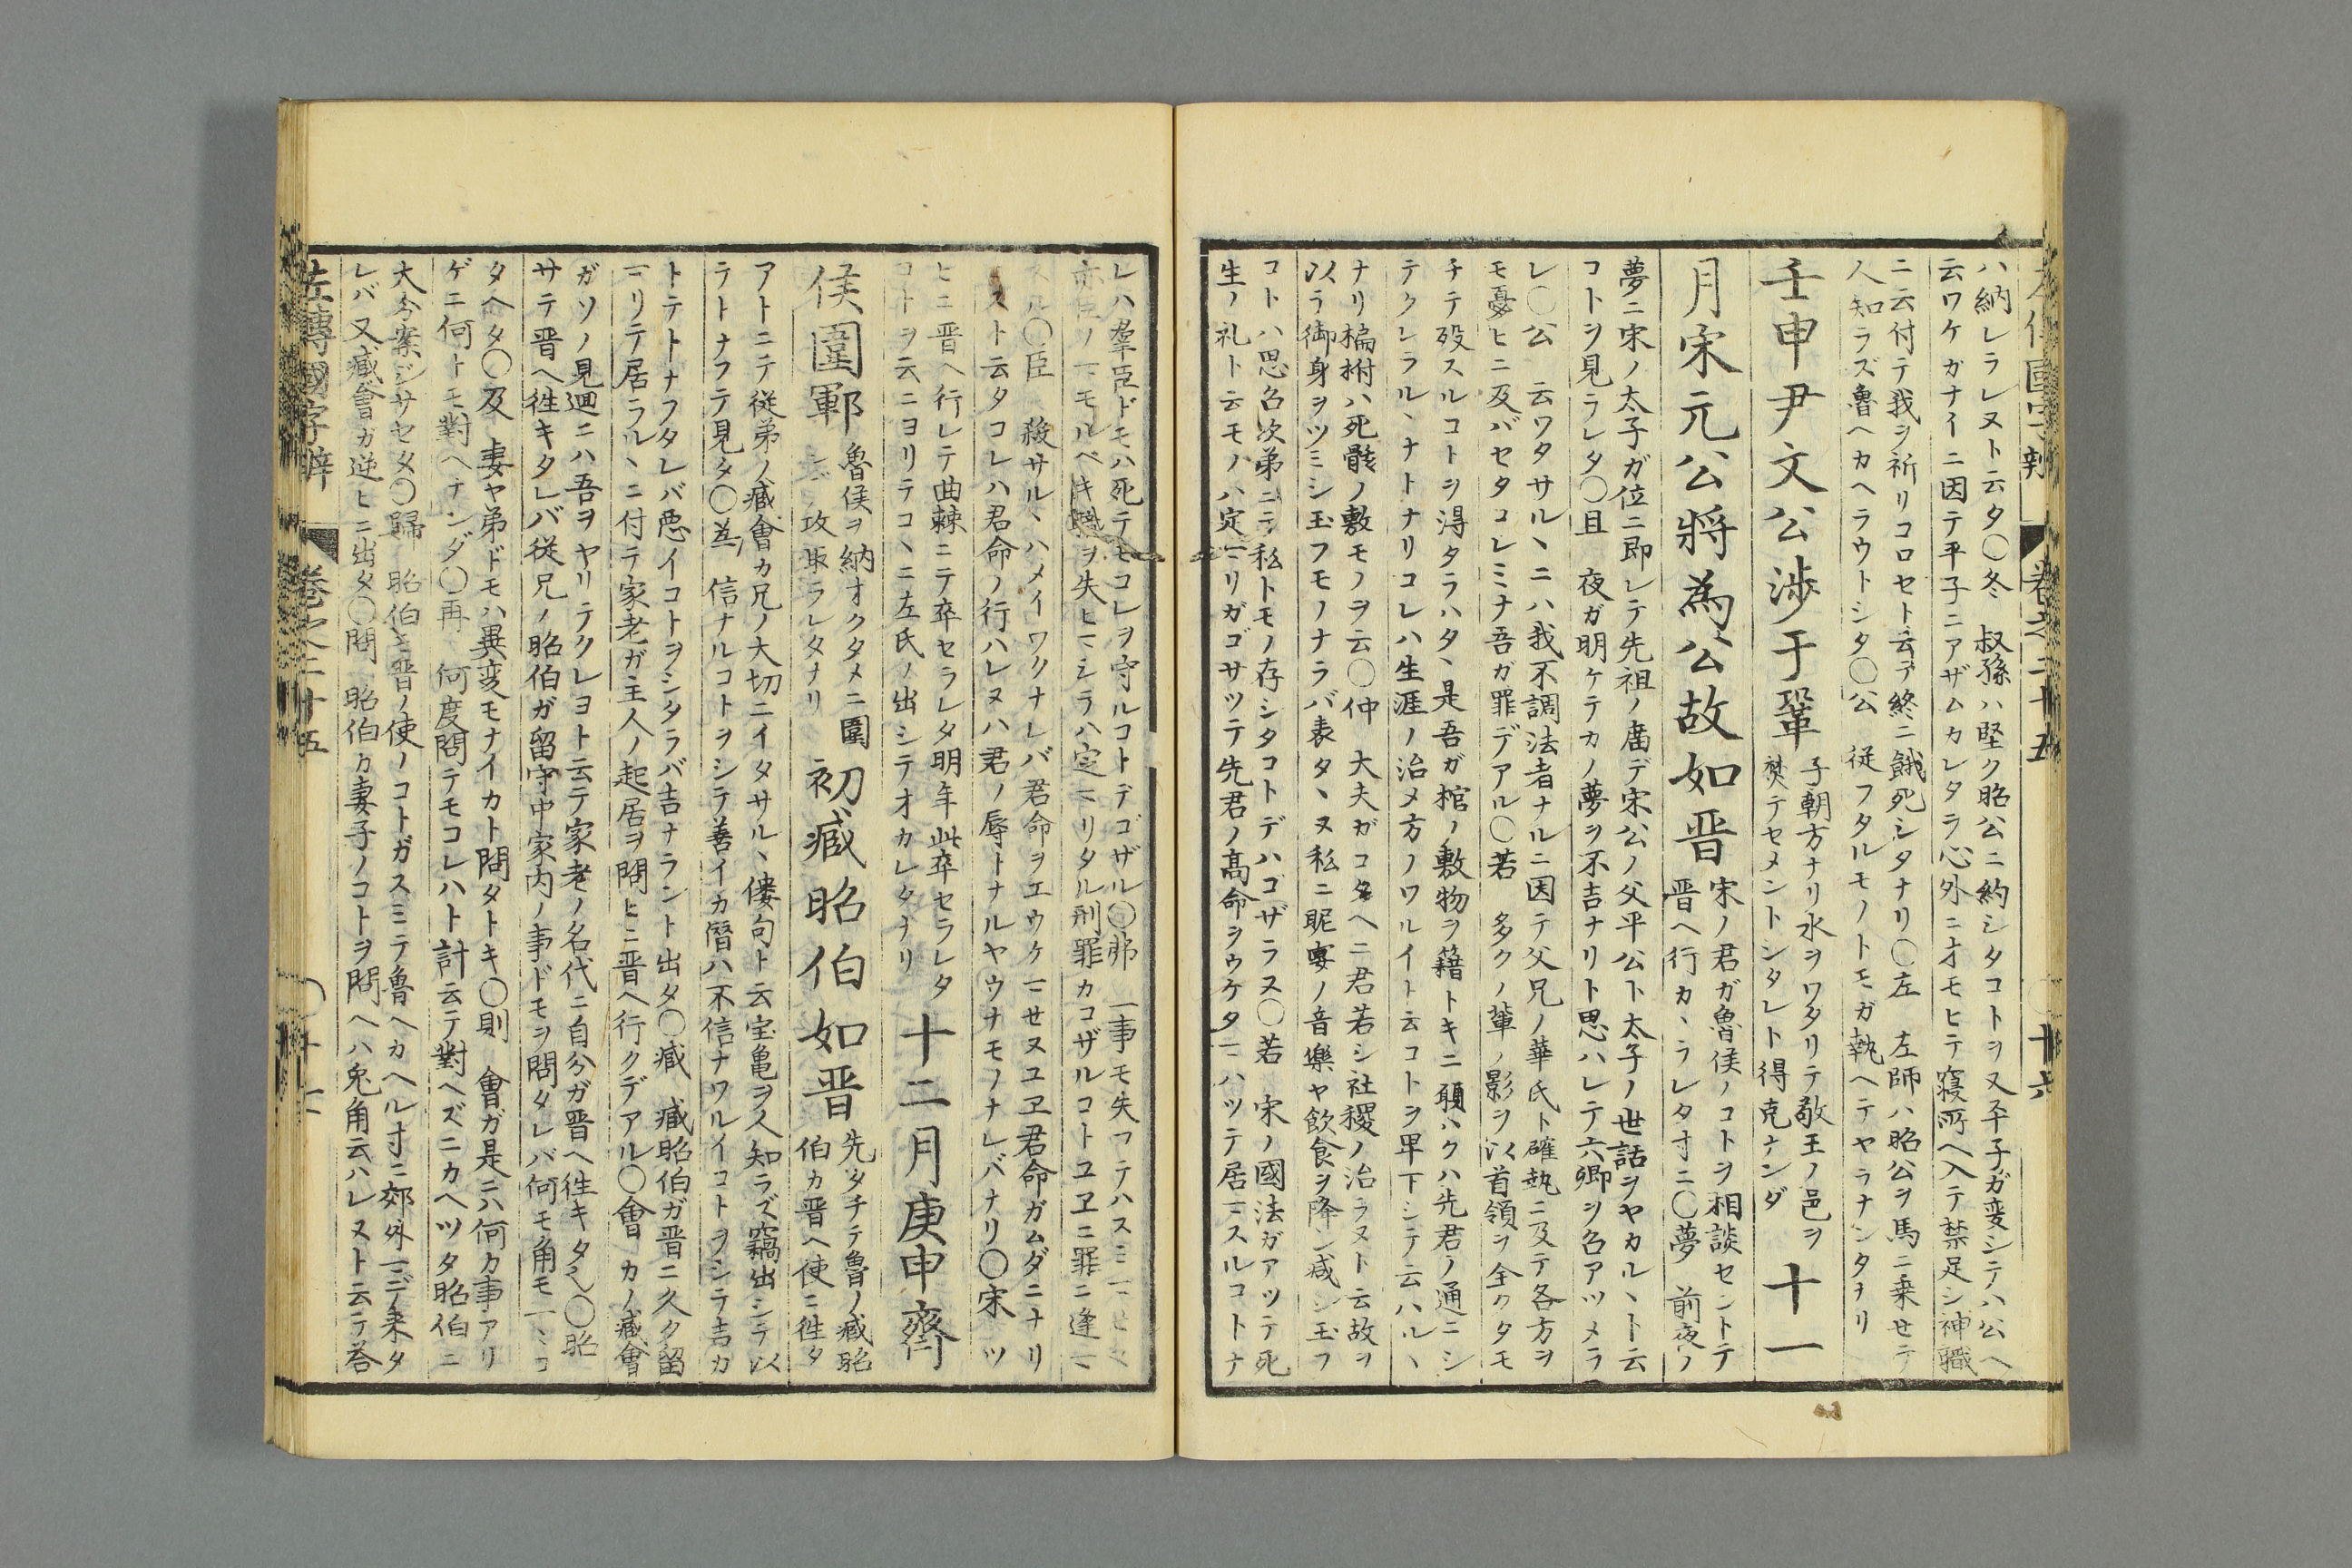 左傳國字辨 巻之二十五 〇十六
ハ納レラレヌト云タ〇冬 叔孫ハ堅ク昭公ニ約シタコトヲ又平子ガ変シテハ公ヘ
云ワケガナイニ因テ平子ニアザムカレタラ心外ニオモヒテ寝所ヘ入テ禁足シ神職
ニ云付テ我ヲ祈リコロセト云テ終ニ餓死シタナリ〇左 左師ハ昭公ヲ馬ニ乗セテ
人知ラズ魯ヘカヘラウトシタ〇公 従フタルモノトモガ執ヘテヤラナンタナリ
壬申尹文公渉于鞏
子朝方ナリ水ヲワタリテ敬王ノ邑ヲ
焚テセメントシタレト得克ナンダ
十一
月宋元公將為公故如晋
宋ノ君ガ魯侯ノコトヲ相談セントテ
晋ヘ行カヽラレタオニ〇夢 前夜ノ
夢ニ宋ノ太子ガ位ニ即レテ先祖ノ廟デ宋公ノ父平公ト太子ノ世話ヲヤカルヽト云
コトヲ見ラレタ〇且 夜ガ明ケテカノ夢ヲ不吉ナリト思ハレテ六卿ヲ召アツメラ
レ〇公 云ワタサルヽニハ我不調法者ナルニ因テ父兄ノ華氏ト確執ニ及テ各方ヲ
モ憂ヒニ及バセタコレミナ吾ガ罪デアル〇若 多クノ輩ノ影ヲ以首領ヲ全クタモ
チテ殁スルコトヲ得タラハタヽ是吾ガ棺ノ敷物ヲ籍トキニ願ハクハ先君ノ通ニシ
テクレラルヽナトナリコレハ生涯ノ治メ方ノワルイト云コトヲ卑下シテ云ハルヽ
ナリ楄柎ハ死骸ノ敷モノヲ云〇仲 大夫ガコタヘニ君若シ社稷ノ治ラヌト云故ヲ
以ラ御身ヲツミシ玉フモノナラバ表タヽヌ私ニ昵宴ノ音樂ヤ飲食ヲ降ン减シ玉フ
コトハ思召次第ニテ私トモノ存シタコトデハゴザラヌ〇若 宋ノ國法ガアツテ死
生ノ礼ト云モノハ定マリガゴサツテ先君ノ高命ヲウケタマハツテ居マスルコトナ
レハ羣臣ドモハ死テモコレヲ守ルコトデゴザル〇弗 一事モ失フテハスミマセヌ
亦臣ノマモルベキ職ヲ失ヒマシラハ定マリタル刑罪カコザルコトユヱニ罪ニ逢マ
スル〇臣 殺サルヽハメイワクナレバ君命ヲエウケマセヌユヱ君命ガムダニナリ
マスト云タコレハ君命ノ行ハレヌハ君ノ辱トナルヤウナモノナレバナリ〇宋 ツ
ヒニ晋ヘ行レテ曲棘ニテ卒セラレタ明年此卒セラレタ
コトヲ云ニヨリテコヽニ左氏ノ出シテオカレタナリ
十二月庚申齊
侯圍鄆
魯侯ヲ納オクタメニ圍
ンデ攻取ラレタナリ
初臧昭伯如晋
先タチテ魯ノ臧昭
伯カ晋ヘ使ニ徃タ
アトニテ従弟ノ臧會カ兄ノ大切ニイタサルヽ僂句ト云宝亀ヲ人知ラズ竊出シテ以
テトナフテ見タ〇為 信ナルコトヲシテ善イカ僭ハ不信ナワルイコトヲシテ吉カ
トテトナフタレバ悪イコトヲシタラバ吉ナラント出タ〇臧 臧昭伯ガ晋ニ久ク留
マリテ居ラルヽニ付テ家老ガ主人ノ起居ヲ問ヒニ晋ヘ行クデアル〇會 カノ臧會
ガソノ見廻ニハ吾ヲヤリテクレヨト云テ家老ノ名代ニ自分ガ晋ヘ徃キタ〇昭
サテ晋ヘ徃キタレバ従兄ノ昭伯ガ留守中家内ノ事ドモヲ問タレバ何モ角モ一ヽコ
タヘタ〇及 妻ヤ弟ドモハ異変モナイカト問タトキ〇則 會ガ是ニハ何カ事アリ
ゲニ何トモ對ヘナンダ〇再 何度問テモコレハト計云テ對ヘズニカヘツタ昭伯ニ
大分案ジサセタ〇歸 昭伯モ晋ノ使ノコトガスミテ魯ヘカヘル寸ニ郊外マデ来タ
レバ又臧會ガ逆ヒニ出タ〇問 昭伯カ妻子ノコトヲ問ヘハ兎角云ハレヌト云テ荅
左傳國字辨 巻之二十五